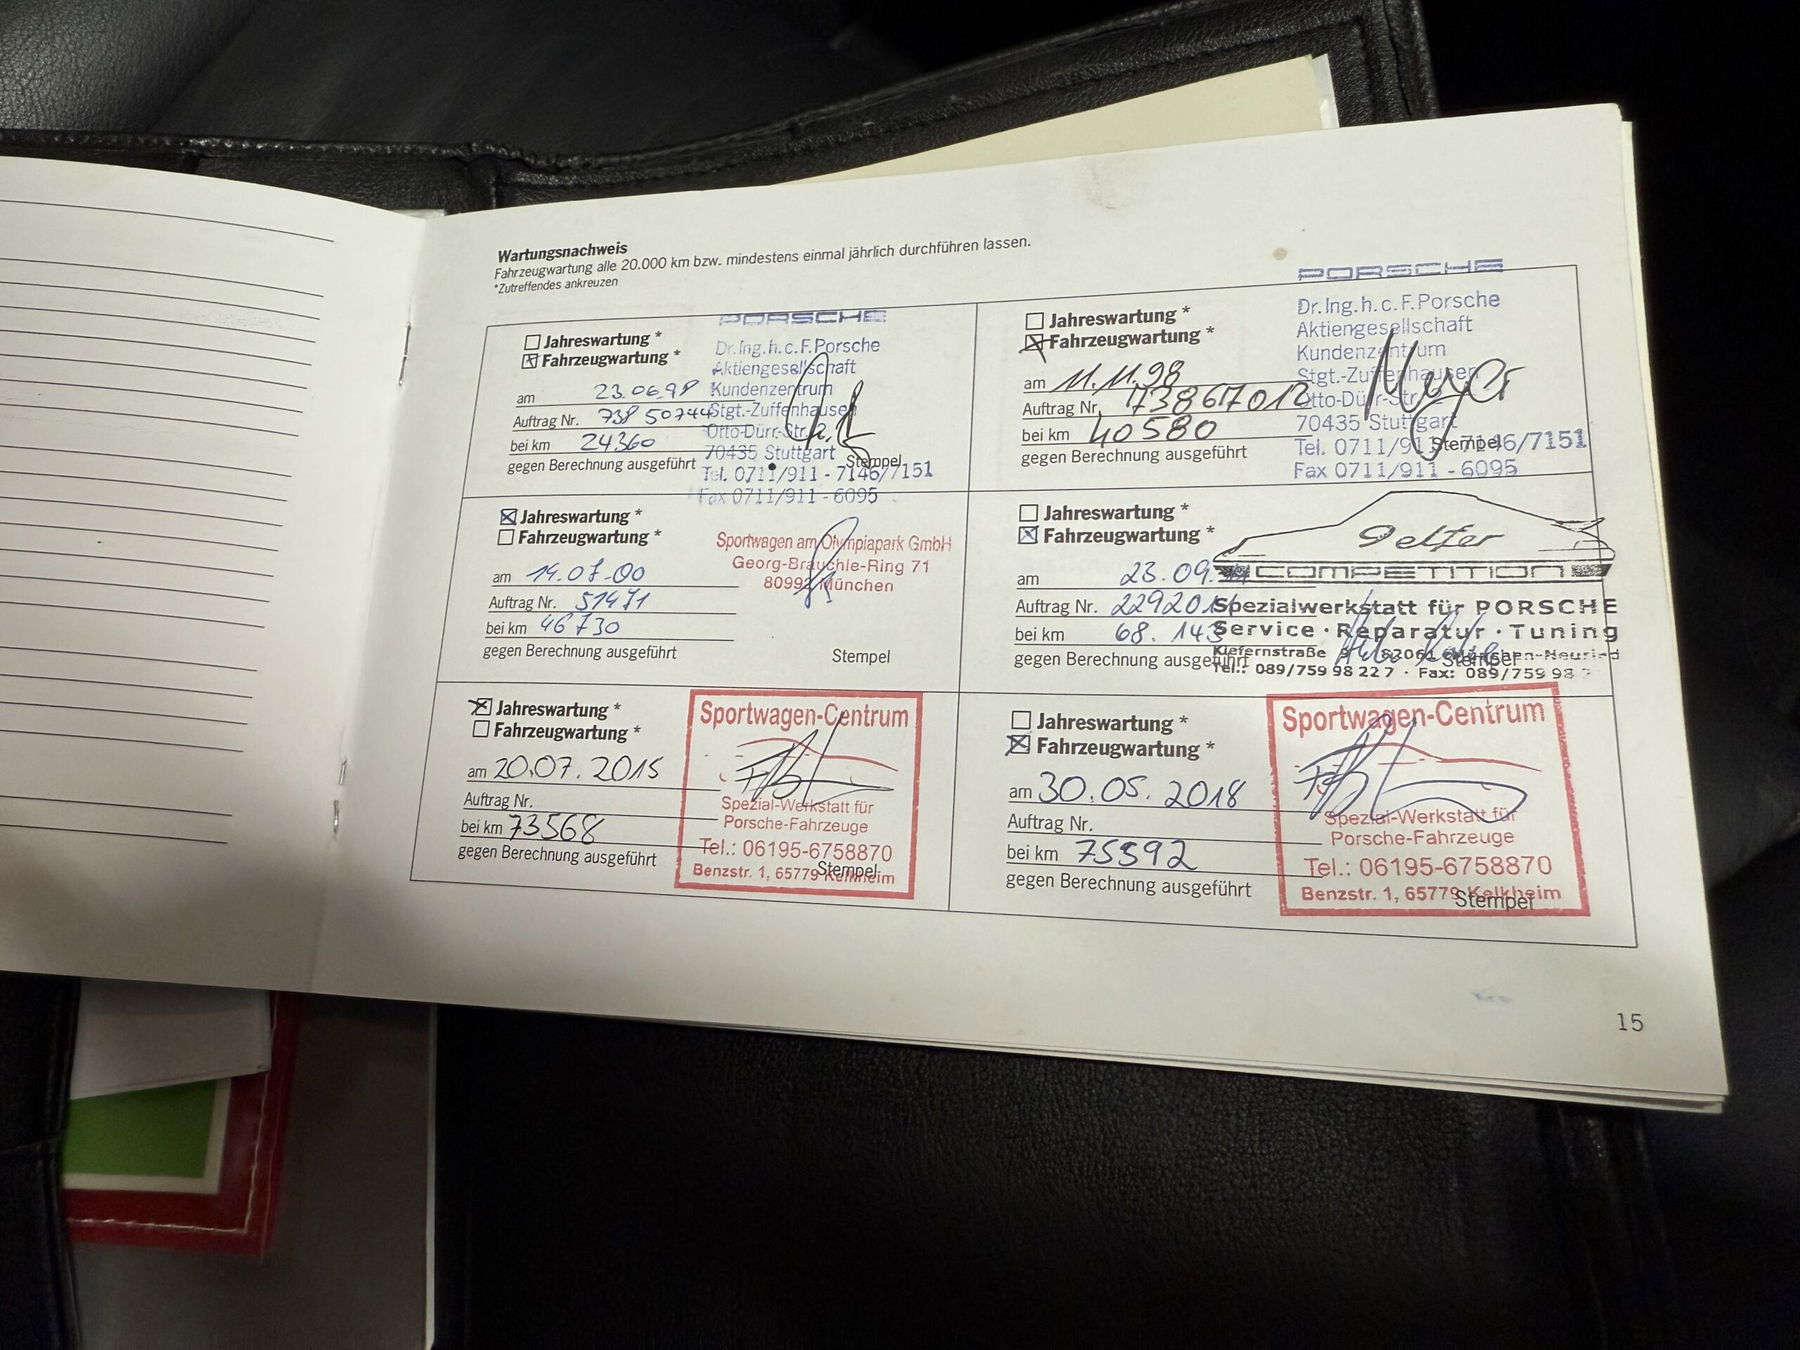 Wartungsnachweis
Fahrzeugwartung alle 20.000 km bzw. mindestens einmal jährlich durchführen lassen.
*Zutreffendes ankreuzen
Jahreswartung *
Fahrzeugwartung *
am 23.06.98
Auftrag Nr. 738 50744
bei km 24360
gegen Berechnung ausgeführt
Stempel
PORSCHE
Dr.Ing.h.c.F.Porsche
Aktiengesellschaft
Kundenzentrum
Stgt.-Zuffenhausen
Otto-Dürr-Str.
70435 Stuttgart
Tel. 0711/911 - 7146/7151
Fax 0711/911 - 6095
Jahreswartung *
Fahrzeugwartung *
am 11.11.98
Auftrag Nr. 73867012
bei km 40580
gegen Berechnung ausgeführt
Stempel
PORSCHE
Dr.Ing.h.c.F.Porsche
Aktiengesellschaft
Kundenzentrum
Stgt.-Zuffenhausen
Otto-Dürr-Str.
70435 Stuttgart
Tel. 0711/911 - 7146/7151
Fax 0711/911 - 6095
Jahreswartung *
Fahrzeugwartung *
am 19.07.00
Auftrag Nr. 51471
bei km 46730
gegen Berechnung ausgeführt
Stempel
Sportwagen am Olympiapark GmbH
Georg-Brauchle-Ring 71
80992 München
Jahreswartung *
Fahrzeugwartung *
am 23.09.
Auftrag Nr.
bei km 68.143
gegen Berechnung ausgeführt
Stempel
COMPETITION
Spezialwerkstatt für PORSCHE
Service · Reparatur · Tuning
Kiefernstraße 82061 München-Neuried
Tel.: 089/759 98 22 7 · Fax: 089/759 98
Jahreswartung *
Fahrzeugwartung *
am 20.07.2015
Auftrag Nr.
bei km 73568
gegen Berechnung ausgeführt
Stempel
Sportwagen-Centrum
Spezial-Werkstatt für
Porsche-Fahrzeuge
Tel.: 06195-6758870
Benzstr. 1, 65779 Kelkheim
Jahreswartung *
Fahrzeugwartung *
am 30.05.2018
Auftrag Nr.
bei km 75592
gegen Berechnung ausgeführt
Stempel
Sportwagen-Centrum
Spezial-Werkstatt für
Porsche-Fahrzeuge
Tel.: 06195-6758870
Benzstr. 1, 65779 Kelkheim
15